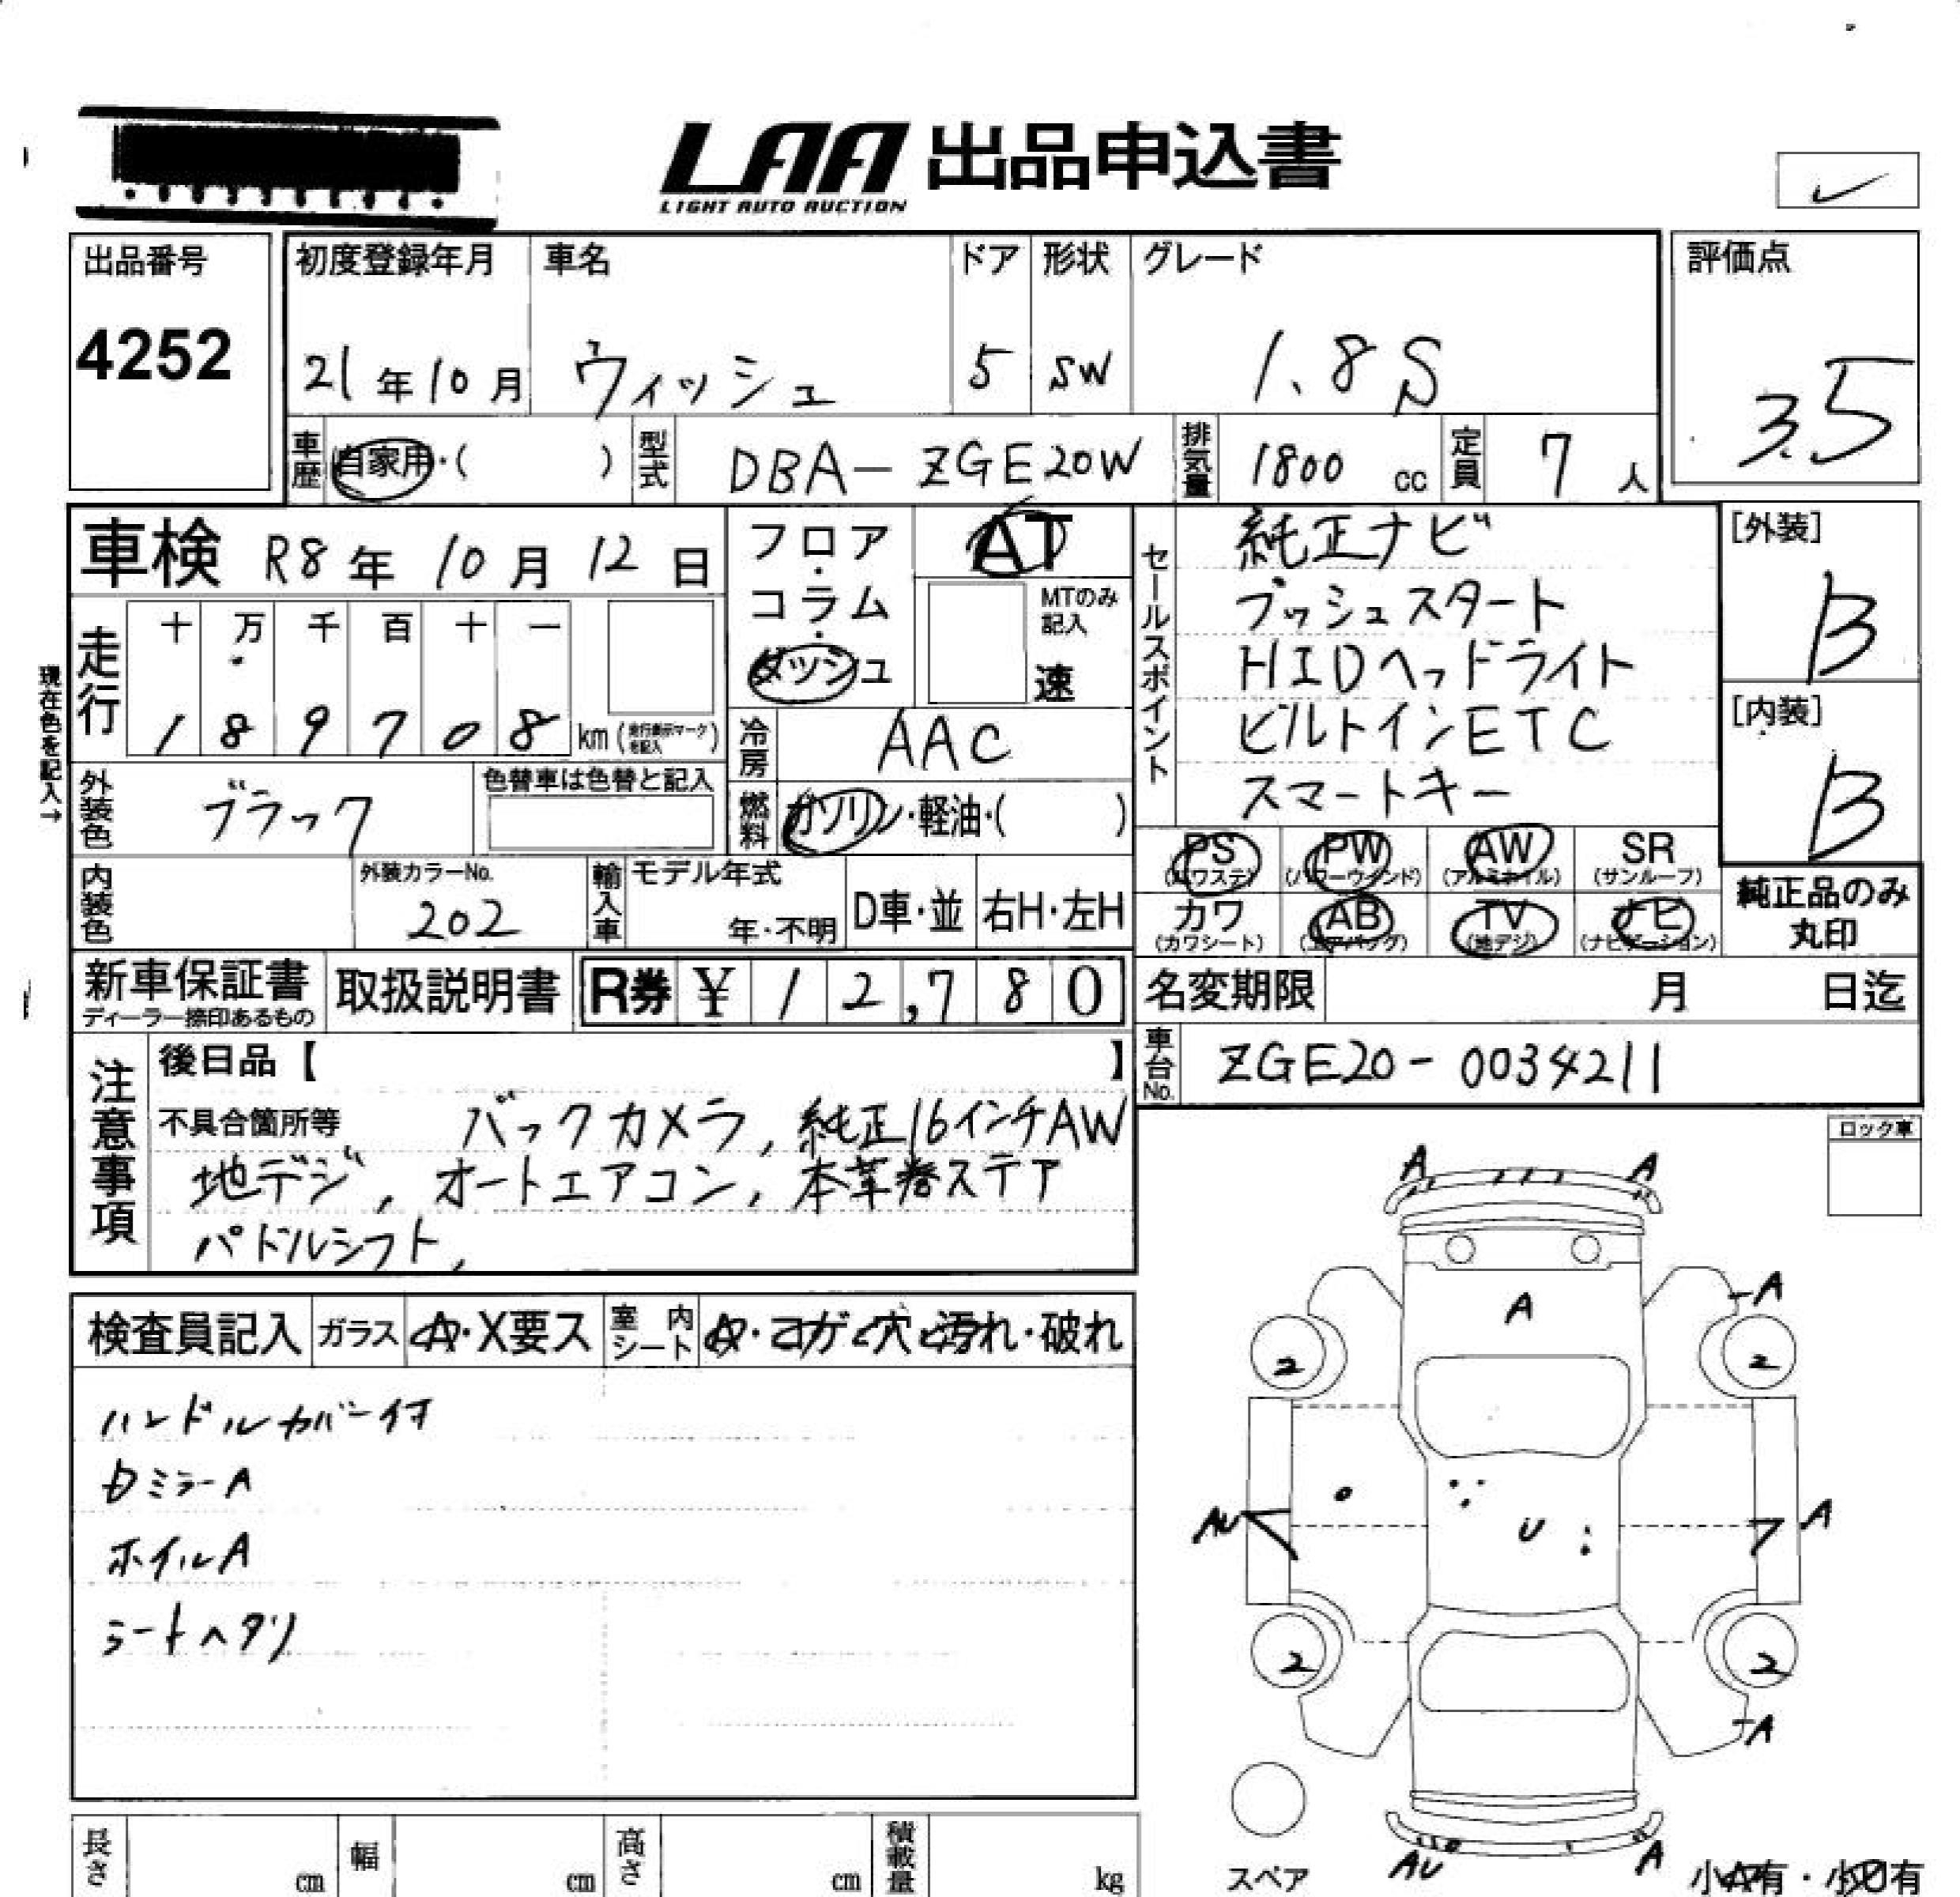 LAA 出品申込書
LIGHT AUTO AUCTION
出品番号
4252
初度登録年月 車名 ドア 形状 グレード
21年10月 ウィッシュ 5 SW 1.8S
評価点
3.5
車歴 自家用・( ) 型式 DBA-ZGE20W 排気量 1800 cc 定員 7人
車検 R8年10月12日
フロア・コラム・ダッシュ
AT
MTのみ記入
速
セールスポイント
純正ナビ
プッシュスタート
HIDヘッドライト
ビルトインETC
スマートキー
[外装]
B
[内装]
B
現在色を記入→
走行
十 万 千 百 十 一
1 8 9 7 0 8 km(走行表示マークを記入)
冷房 AAC
外装色 ブラック
色替車は色替と記入
燃料 ガソリン・軽油・( )
内装色
外装カラーNo.
202
輸入車 モデル年式
年・不明 D車・並 右H・左H
PS PW AW SR
(パワステ) (パワーウインド) (アルミホイル) (サンルーフ)
カワ AB TV ナビ
(カワシート) (エアバッグ) (地デジ) (ナビゲーション)
純正品のみ
丸印
新車保証書
ディーラー捺印あるもの
取扱説明書
R券 ¥ 12,780
名変期限 月 日迄
車台No. ZGE20-0034211
注意事項
後日品【 】
不具合箇所等 バックカメラ, 純正16インチAW
地デジ, オートエアコン, 本革巻ステア
パドルシフト,
ロック車
検査員記入 ガラス A・X要ス 室内シート A・コゲ・穴・汚れ・破れ
ハンドルカバー付
ミラーA
ホイルA
シートヘタリ
A A
A
A
2 2
AU U A
2 2
A
AU A
スペア
小A有・小U有
長さ cm 幅 cm 高さ cm 積載量 kg